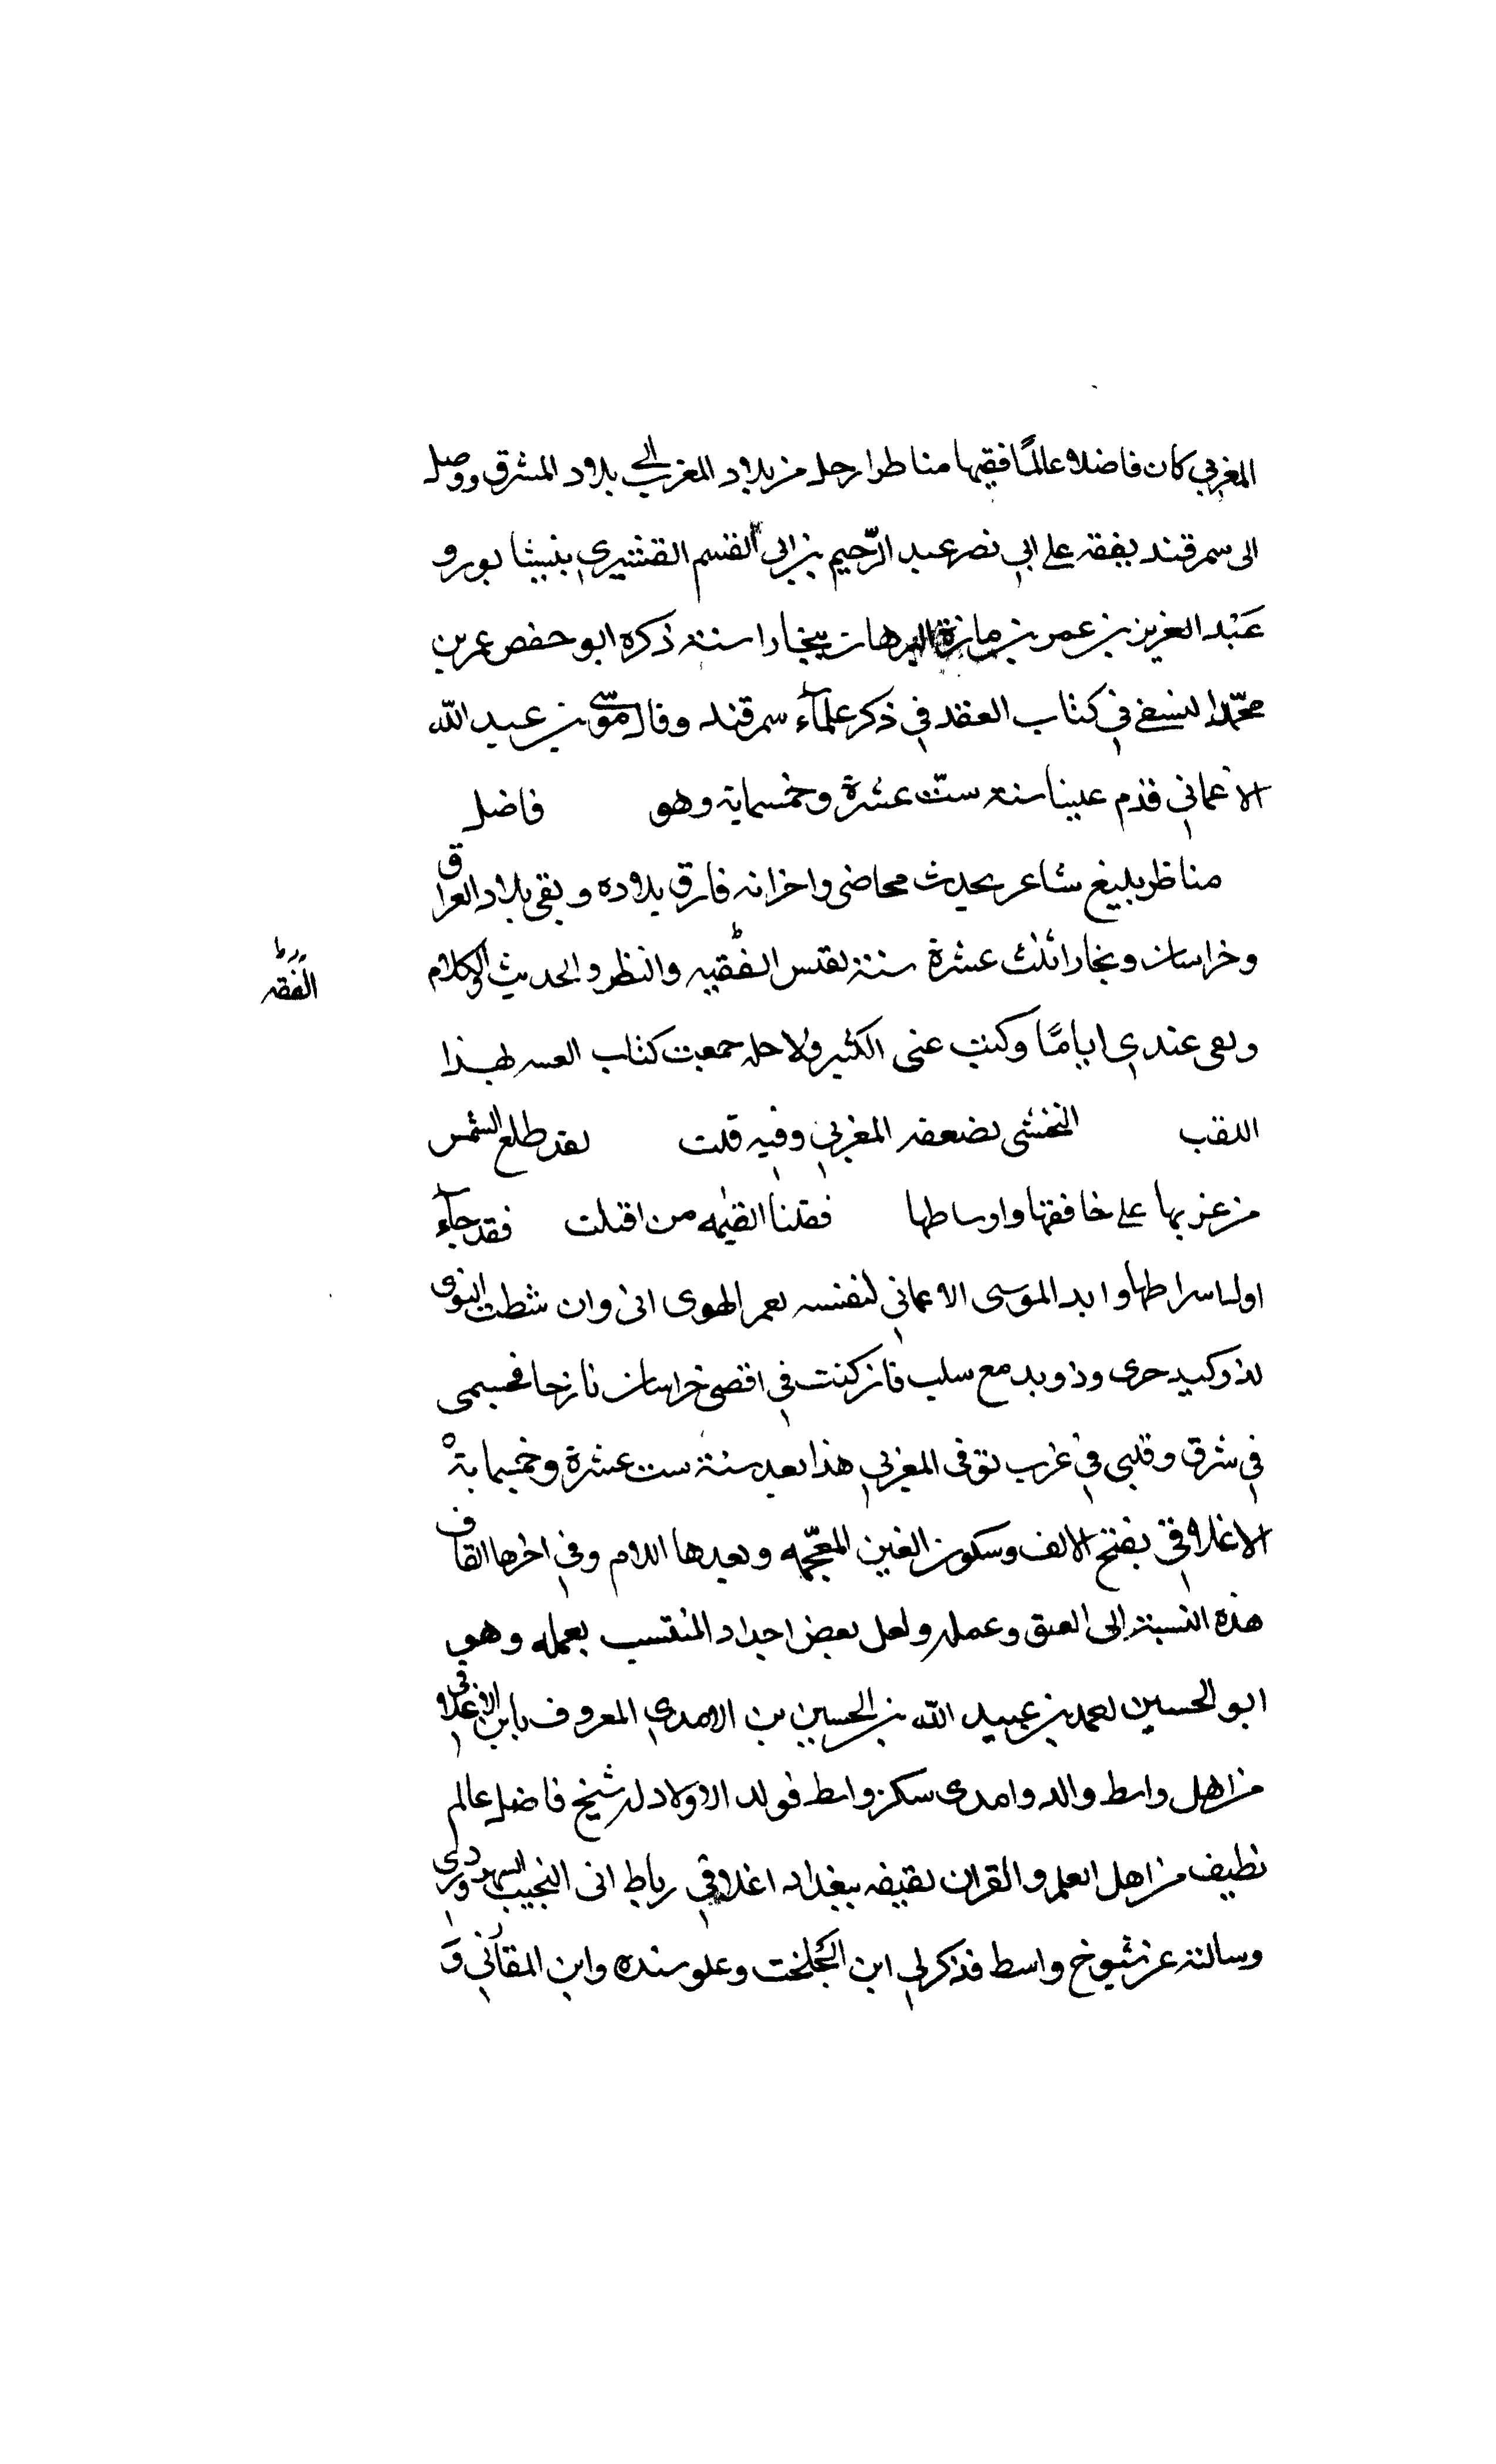 المغربي كان فاضلا عالمًا فقيها مناظرا رحل من بلاد المغرب الى بلاد المشرق ووصل
الى سمرقند تفقه على ابي نصر عبد الرّحيم بن ابي القسم القشيري بنيسابور و
عَبْد العزيز بن عمر بن مازة البرهان ببخارا سنة ذكره ابو حفص عمر بن
محمّد النسفي في كتاب القند في ذكر علمآء سمرقند وقال موسى بن عبد الله
الاغماني قدم علينا سنة ستّ عشرة وخمسماية وهو فاضل
مناظر بليغ شاعر محدث محاضر واخر انه فارق بلاده و بقي ببلاد العراق
وخراسان وبخارا ثلث عشرة سنة يقتبس الفقيه والنظر والحديث والكلام
الفقه
وبقى عندي ايامًا وكتب عنى الكثير ولاجله جمعت كتاب لهذا
اللقب المغربي وفيه قلت لقد طلع الشمس
من غربها على خافقها واوساطها فقلنا القيمة من اقبلت فقد جآء
اول اسراطها وانشد الموسى الاغماني لنفسه لعمر الهوى انى وان شطت النوى
لذو كبد حرى وذو مدمع سكب فان كنت في اقصى خراسان نازحا فجسمى
في شرق وقلبى في غرب توفى المغربي هذا بعد سنة ست عشرة وخمسماية
الاغلاقي بفتح الالف وسكون الغين المعجمه وبعدها اللام وفي اخرها القاف
هذه النسبة الى الغلق وعمله ولعل بعض اجداد المنتسب بعمله وهو
ابو الحسين بن عبيد الله بن الحسين بن الامدي المعروف بابن الاغلاقي
من اهل واسط والده امدى سكن واسط فولد الاولاد له شيخ فاضل عالم
نظيف من اهل العلم والقران لقيته ببغداد اغلاقي رباط ابى النجيب السهروردي
وسالته عن شيوخ واسط فذكر لي ابن الجلخت وعلو سنده وابن المقانى وَ